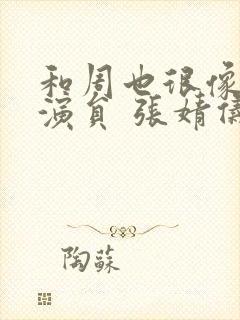 和周也很像
演員 張婧儀
陶蘇